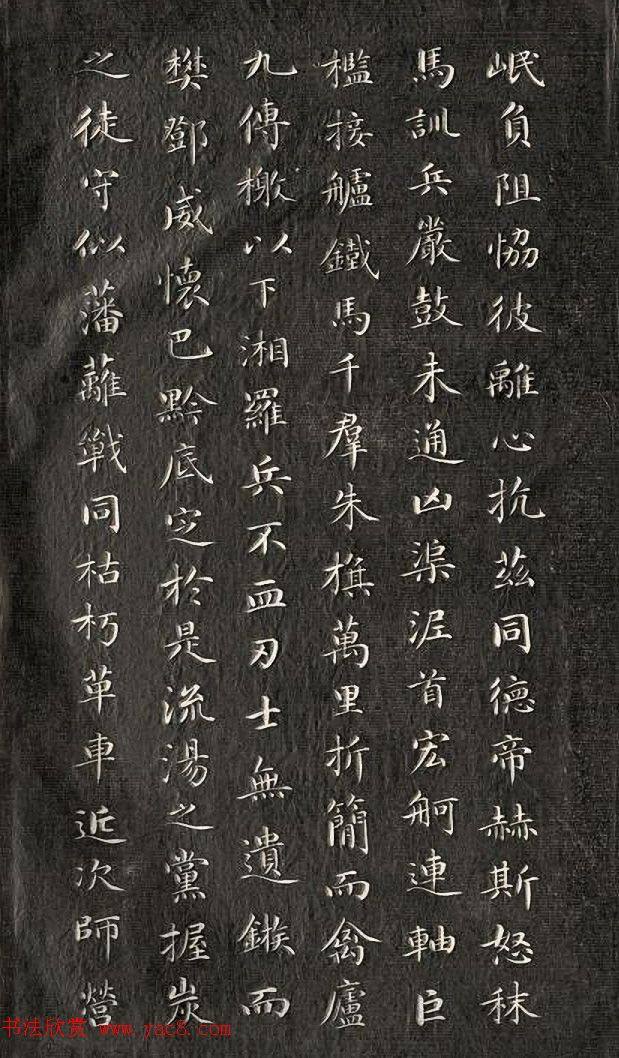 岷負阻恊彼離心抗茲同德帝赫斯怒秣
馬訓兵嚴鼓未通凶渠泥首宏舸連軸巨
檻接艫鐵馬千羣朱旗萬里折簡而禽廬
九傳檄以下湘羅兵不血刃士無遺鏃而
樊鄧威懷巴黔底定於是流湯之黨握炭
之徒守似藩蘺戰同枯朽革車近次師營
书法欣赏 www.yac8.com